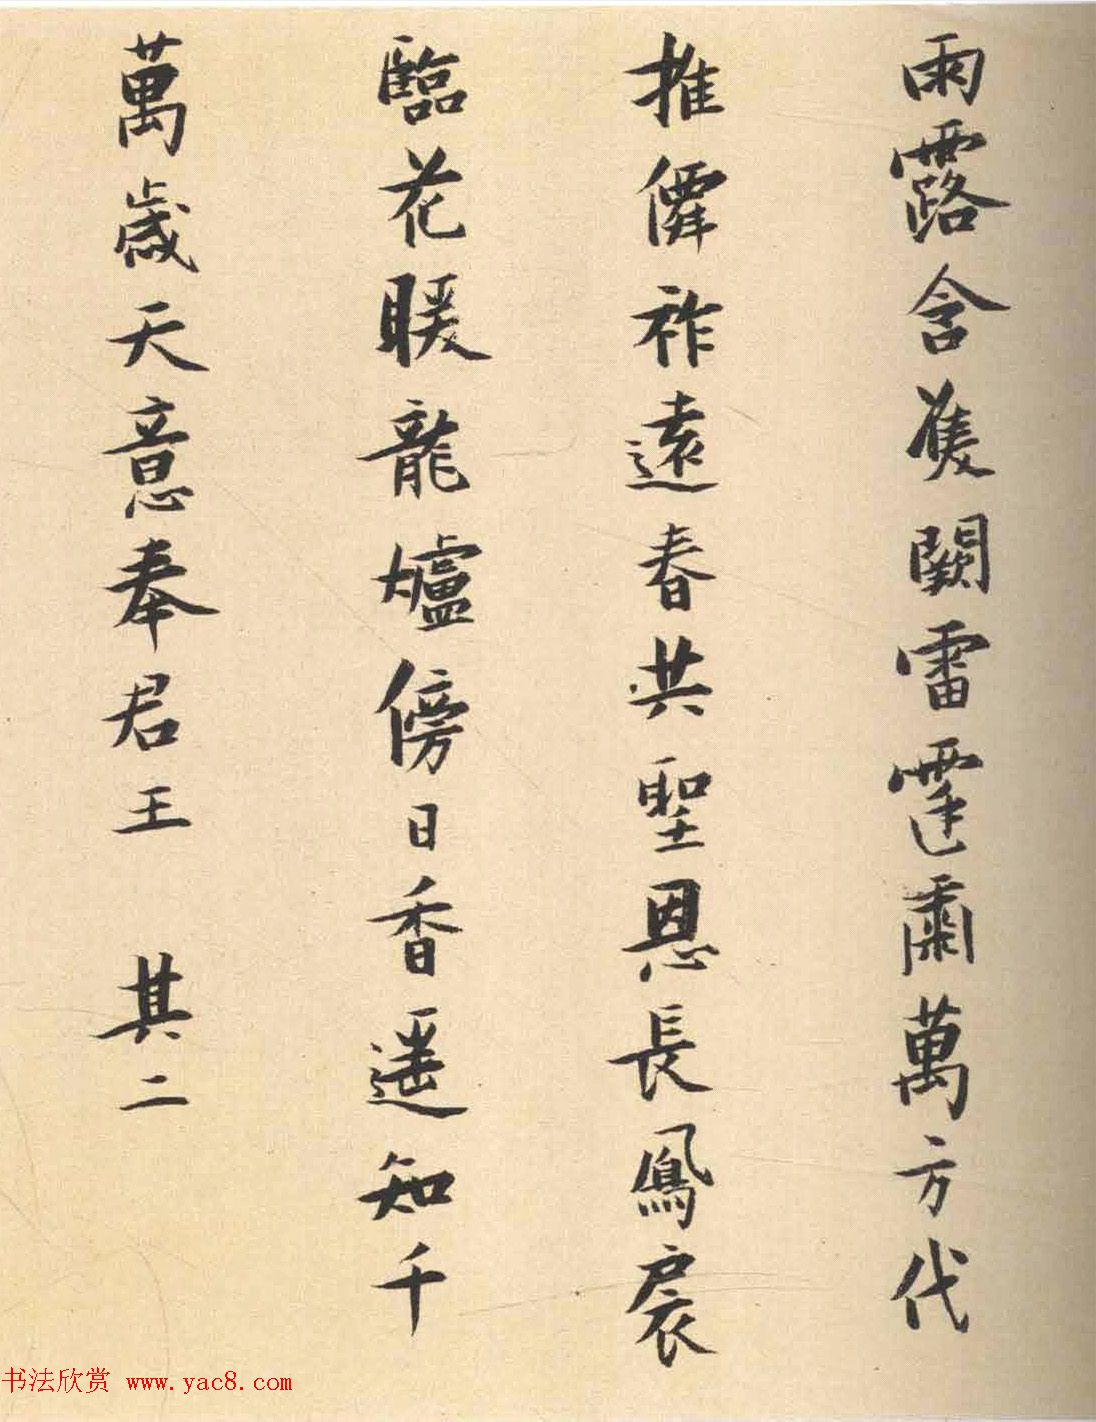 雨露含雙闕雷霆肅萬方代
推僊祚遠春共聖恩長鳳扆
臨花暖龍爐傍日香遥知千
萬歲天意奉君王 其二
书法欣赏 www.yac8.com